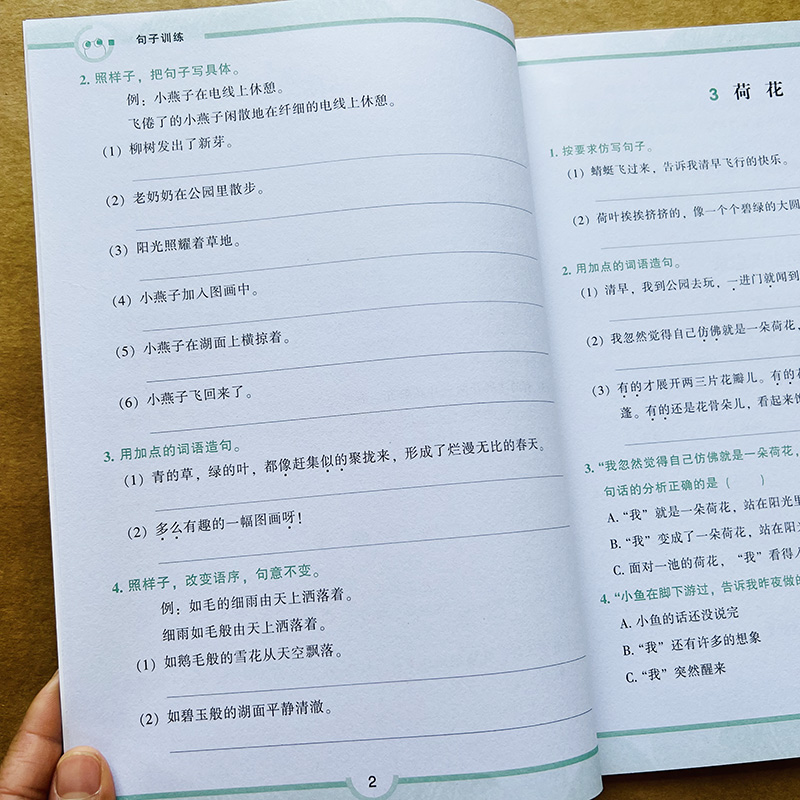 句子训练
2. 照样子，把句子写具体。
例：小燕子在电线上休憩。
飞倦了的小燕子闲散地在纤细的电线上休憩。
(1) 柳树发出了新芽。
(2) 老奶奶在公园里散步。
(3) 阳光照耀着草地。
(4) 小燕子加入图画中。
(5) 小燕子在湖面上横掠着。
(6) 小燕子飞回来了。
3. 用加点的词语造句。
(1) 青的草，绿的叶，都像赶集似的聚拢来，形成了烂漫无比的春天。
(2) 多么有趣的一幅图画呀！
4. 照样子，改变语序，句意不变。
例：如毛的细雨由天上洒落着。
细雨如毛般由天上洒落着。
(1) 如鹅毛般的雪花从天空飘落。
(2) 如碧玉般的湖面平静清澈。
2
3 荷花
1. 按要求仿写句子。
(1) 蜻蜓飞过来，告诉我清早飞行的快乐。
(2) 荷叶挨挨挤挤的，像一个个碧绿的大圆
2. 用加点的词语造句。
(1) 清早，我到公园去玩，一进门就闻到
(2) 我忽然觉得自己仿佛就是一朵荷花，
(3) 有的才展开两三片花瓣儿。有的花
蓬。有的还是花骨朵儿，看起来饱
3. “我忽然觉得自己仿佛就是一朵荷花，
句话的分析正确的是（ ）
A. “我”就是一朵荷花，站在阳光里
B. “我”变成了一朵荷花，站在阳光
C. 面对一池的荷花，“我”看得入
4. “小鱼在脚下游过，告诉我昨夜做的
A. 小鱼的话还没说完
B. “我”还有许多的想象
C. “我”突然醒来